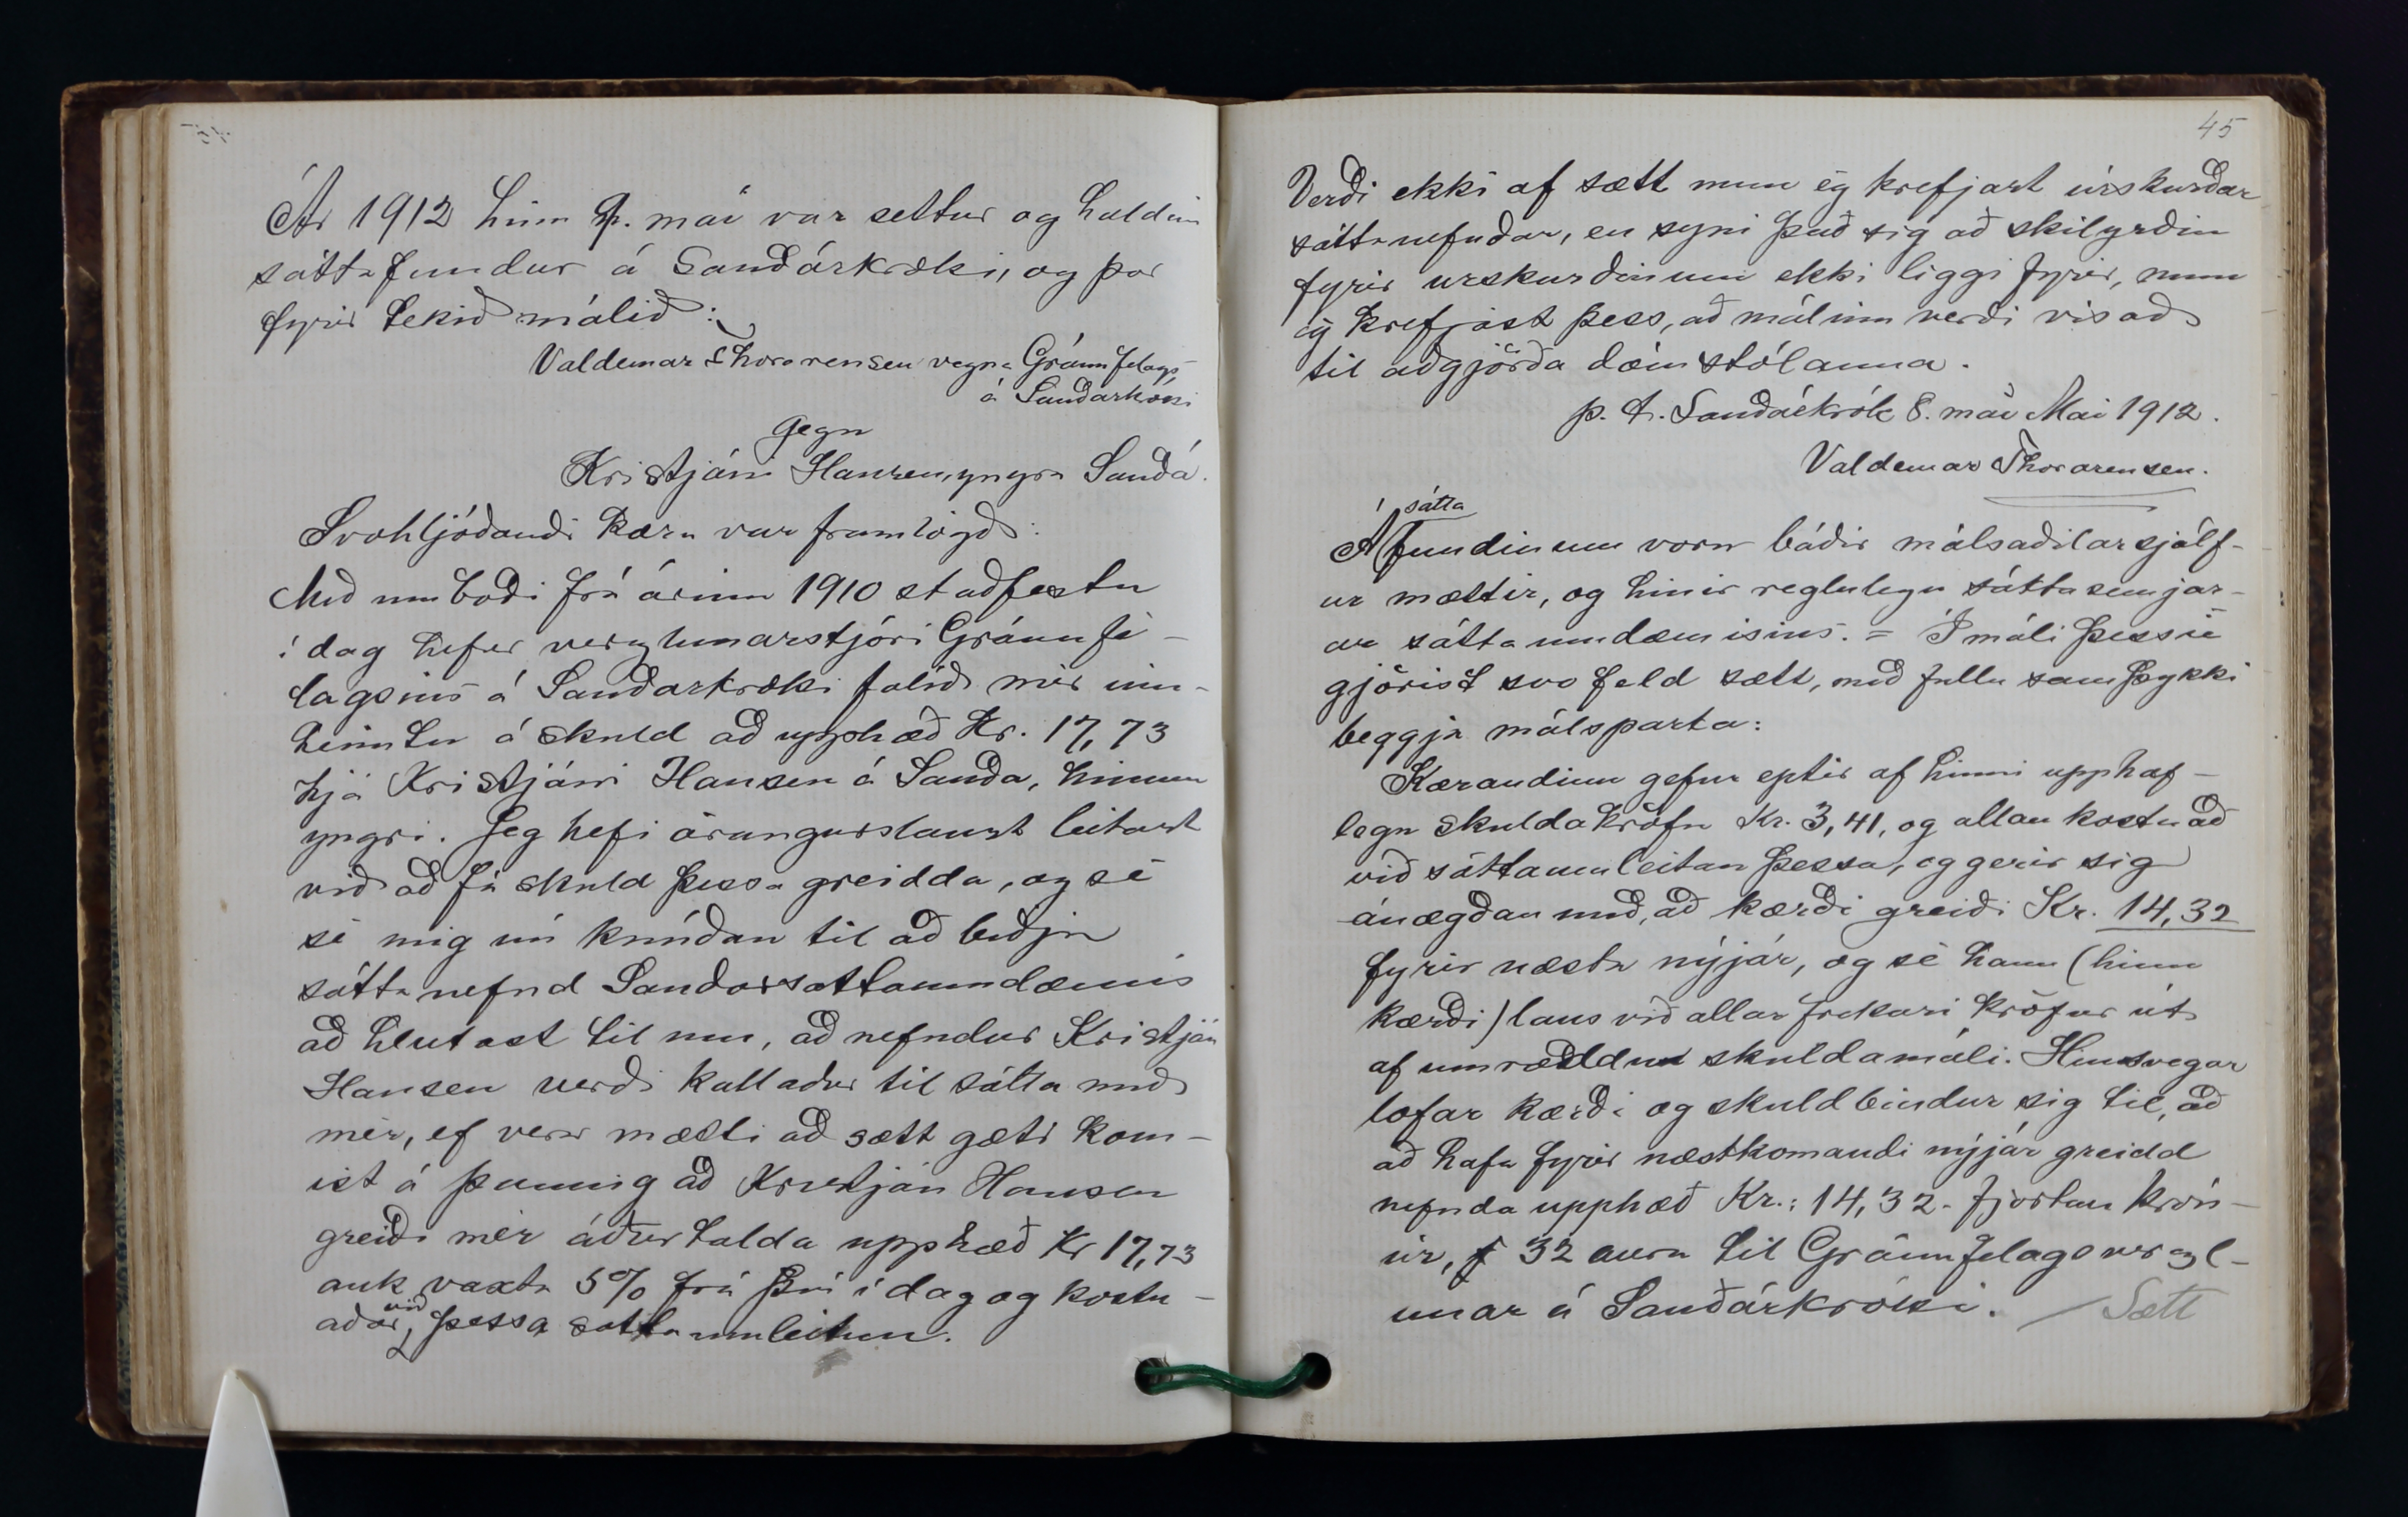 Ár 1912 hinn 9. maí var settur og haldin
sáttafundur á Sauðárkróki, og þar
fyrir tekið málið:
Valdemar Thorarensen vegna Gránufelags
á Sauðarkróki
gegn
Kristjáni Hansen, yngra Sauðá.
Svohljóðandi kæra var framlögð:
Með umboði frá árinu 1910 staðfestu
í dag hefur verzlunarstjóri Gránufé-
lagsins á Sauðarkróki falið mér inn-
heimtu á skuld að upphæð Kr. 17,73
hjá Kristjáni Hansen á Sauða, hinum
yngri. Jeg hefi árangurslaust leitast
við að fá skuld þessa greidda, og sé
sé mig nú knúðan til að biðja
sáttanefnd Saudarsáttaumdæmis
að hlutast til um, að nefndur Kristján
Hansen verði kallaður til sátta með
mér, ef vera mætti að sætt gæti kom-
ist á þannig að Kristján Hansen
greiði mér áðurtalda upphæð Kr 17,73
auk vaxta 5% frá því í dag og kostn-
aðar við þessa sáttaumleitun.
45
Verði ekki af sætt mun ég krefjast úrskurðar
sáttanefndar, en syni það sig að skilyrðin
fyrir urskurðinum ekki liggi fyrir, mun
ég krefjast þess, að málinu verði visað
til aðgjörða dómstólanna.
p. t. Sauðárkrók 8. maí Mai 1912.
Valdemar Thorarensen.
sátta
Á fundinum voru báðir málsaðilar sjálf-
ir mættir, og hinir reglulegu sáttasemjar-
ar sáttaumdæmisins. = Í máli þessu
gjörist svo feld sætt, með fullu samþykki
beggja málsparta:
Kærandinn gefur eptir af hinni upphaf-
legu skuldakröfu Kr. 3,41, og allan kostnað
við sáttaumleitan þessa, og gerir sig
ánægðan með, að kærði greiði Kr. 14,32
fyrir næsta nýjár, og sé hann (hinn
kærði) laus við allar frekari kröfur út
af umræddu skuldamáli. Hinsvegar
lofar kærði og skuldbindur sig til, að
að hafa fyrir næstkomandi nýjár greidd
nefnda upphæð Kr.: 14,32 - fjórtán krón-
ur, 32 aura til Gránufelagsverzl-
unar á Sauðárkróki. / Sætt